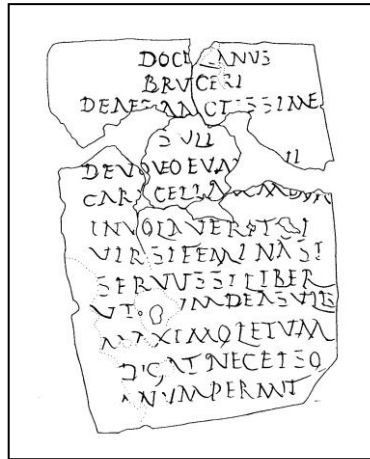 DOCILIANUS
BRUCERI
DEAESANCTISSIME
SULI
DEVOVEOEUM
CARACELLAM
INVOLAVERITSI
VIRSIFEMINASI
SERVUSSILIBER
UT UMDEASULIS
MAXIMOLETUM
DIGATNECEISO
NUMPERMIT